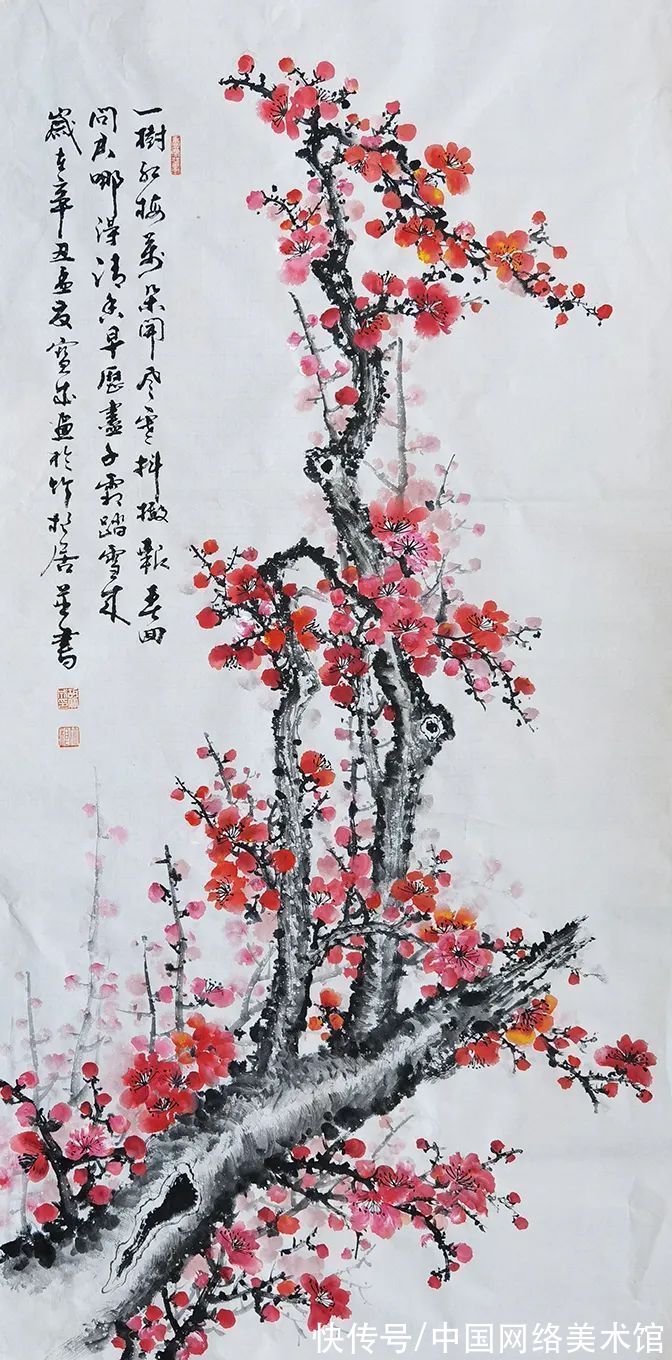 一樹紅梅萬朵開冬寒抖擻報春回
問君哪得清香早歷盡千霜踏雪來
歲在辛丑孟夏寶成畫於竹松居並書
快传号/中国网络美术馆